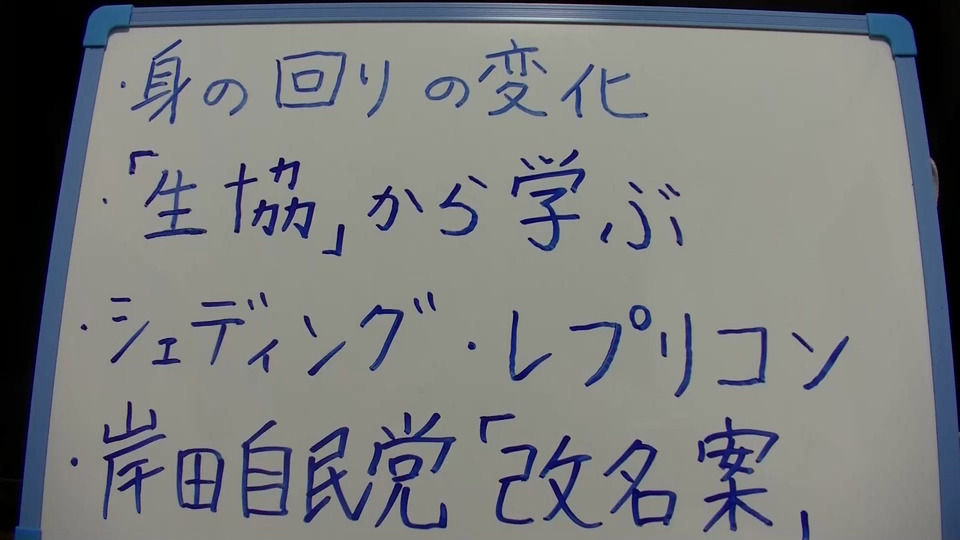 ・身の回りの変化
・「生協」から学ぶ
・シェディング・レプリコン
・岸田自民党「改名案」